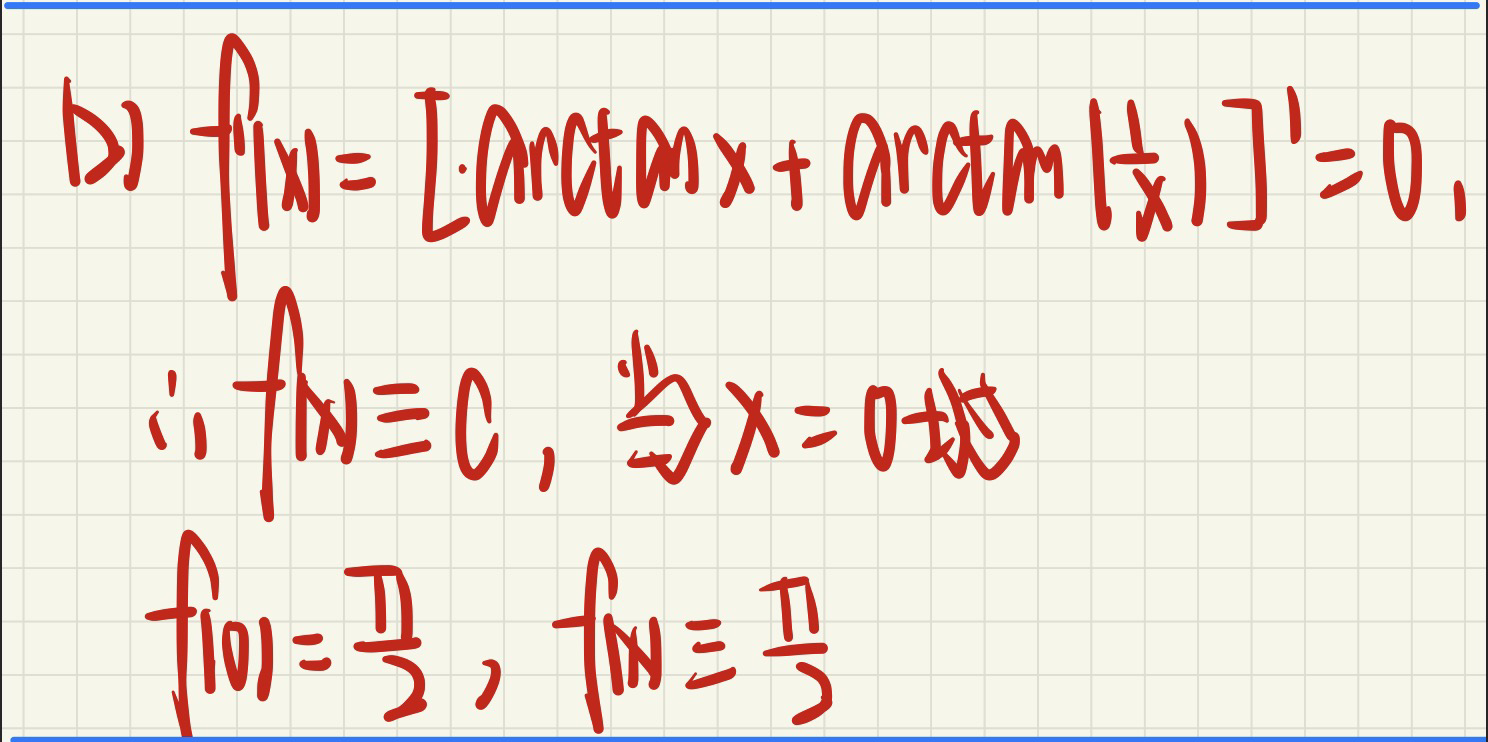 b) f'(x) = [arctan x + arctan(1/x)]' = 0,
∴ f(x) ≡ C, 当 x = 0 时
f(0) = π/2, f(x) ≡ π/2